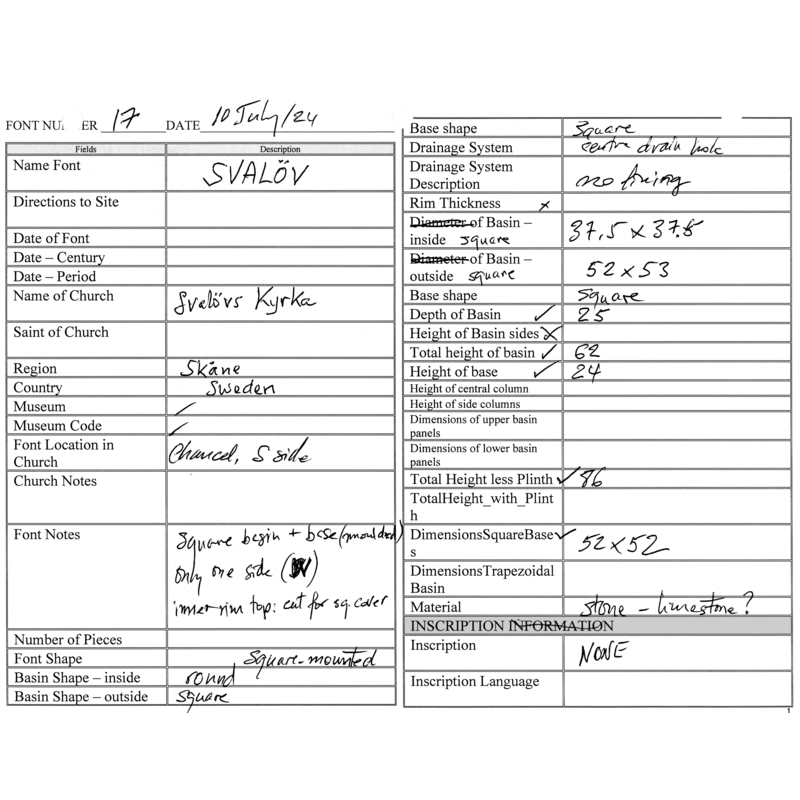 FONT NU ER 17 DATE 10 July/24
Fields Description
Name Font SVALÖV
Directions to Site
Date of Font
Date – Century
Date – Period
Name of Church Svalövs Kyrka
Saint of Church
Region Skåne
Country Sweden
Museum /
Museum Code /
Font Location in Church Chancel, S side
Church Notes
Font Notes square basin + base (moulded)
only one side (W)
inner rim top: cut for sq. cover
Number of Pieces
Font Shape Square-mounted
Basin Shape – inside round
Basin Shape – outside square
Base shape square
Drainage System centre drain hole
Drainage System
Description no lining
Rim Thickness x
Diameter of Basin –
inside square 37.5 x 37.5
Diameter of Basin –
outside square 52 x 53
Base shape square
Depth of Basin ✓ 25
Height of Basin sides x
Total height of basin ✓ 62
Height of base ✓ 24
Height of central column
Height of side columns
Dimensions of upper basin
panels
Dimensions of lower basin
panels
Total Height less Plinth ✓ 86
TotalHeight_with_Plint
h
DimensionsSquareBase ✓
s 52 x 52
DimensionsTrapezoidal
Basin
Material stone – limestone?
INSCRIPTION INFORMATION
Inscription NONE
Inscription Language
1